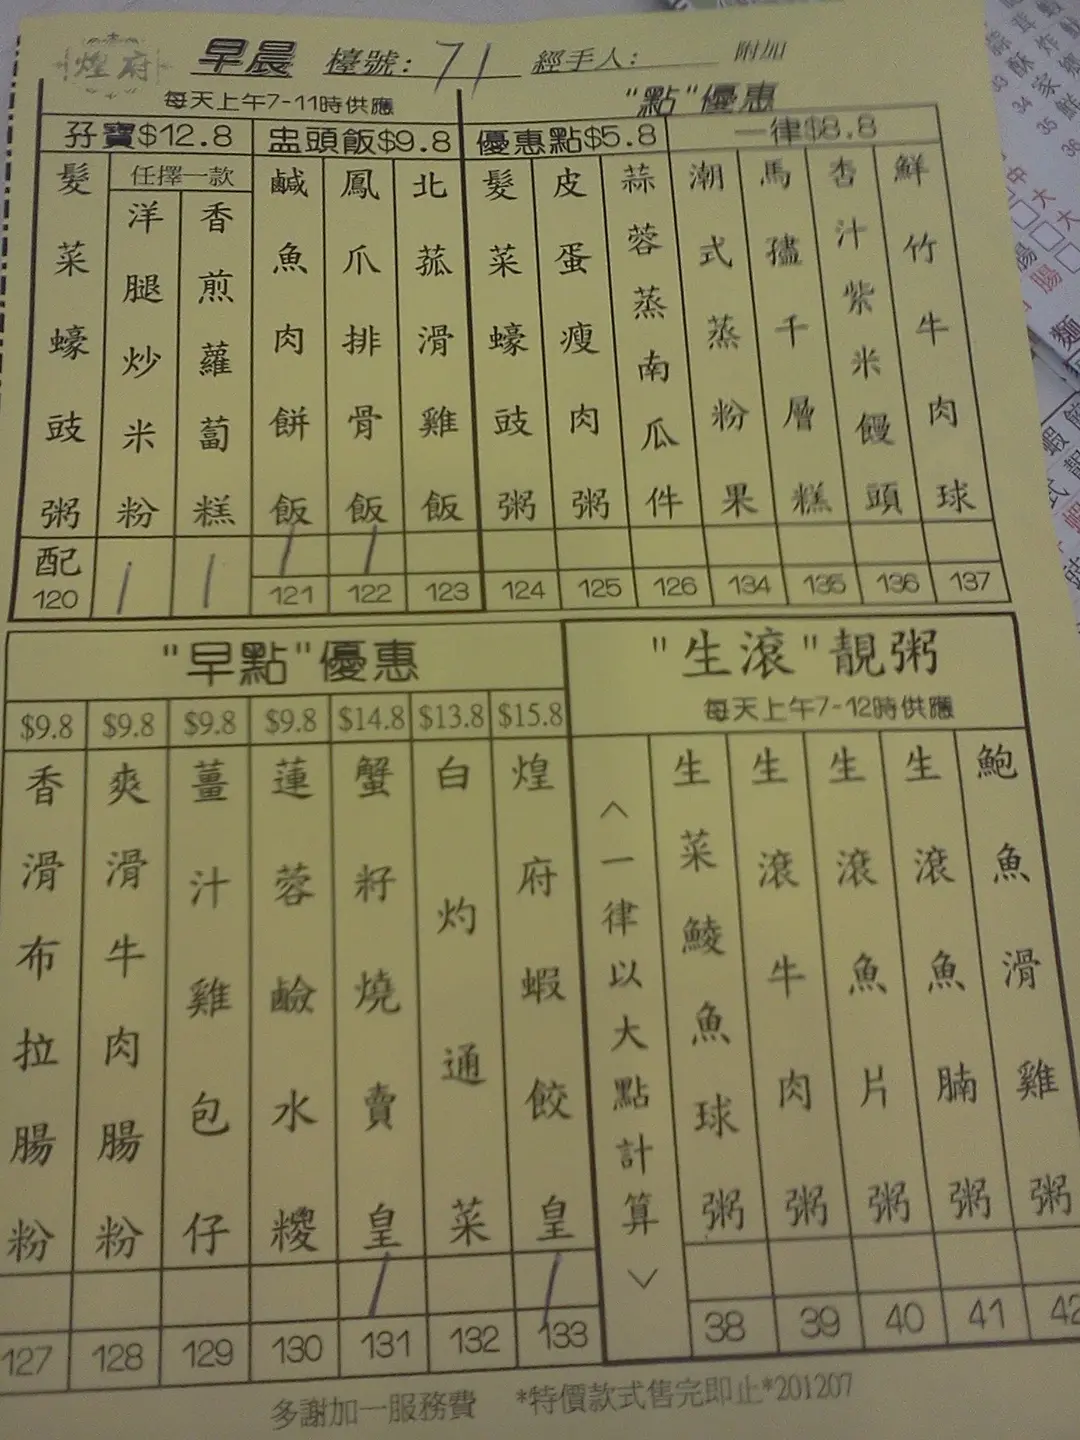 煌府 早晨 檯號: 71 經手人: 附加
每天上午7-11時供應
"點"優惠
孖寶$12.8 盅頭飯$9.8 優惠點$5.8 一律$8.8
髮菜蠔豉粥
任擇一款
洋腿炒米粉
香煎蘿蔔糕
鹹魚肉餅飯
鳳爪排骨飯
北菰滑雞飯
髮菜蠔豉粥
皮蛋瘦肉粥
蒜蓉蒸南瓜件
潮式蒸粉果
馬蹄千層糕
杏汁紫米饅頭
鮮竹牛肉球
配
120 / / 121 / 122 / 123 124 125 126 134 135 136 137
"早點"優惠
$9.8 $9.8 $9.8 $9.8 $14.8 $13.8 $15.8
香滑布拉腸粉
爽滑牛肉腸粉
薑汁雞包仔
蓮蓉鹼水糭
蟹籽燒賣皇
白灼通菜
煌府蝦餃皇
/ /
127 128 129 130 131 132 133
"生滾"靚粥
每天上午7-12時供應
＜一律以大點計算＞
生菜鯪魚球粥
生滾牛肉粥
生滾魚片粥
生滾魚腩粥
鮑魚滑雞粥
38 39 40 41 42
多謝加一服務費 *特價款式售完即止*201207